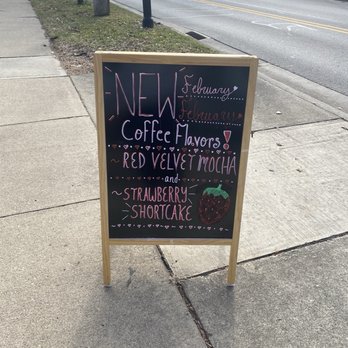 NEW February
February
Coffee Flavors!
~ RED VELVET MOCHA
-and-
~ STRAWBERRY
SHORTCAKE